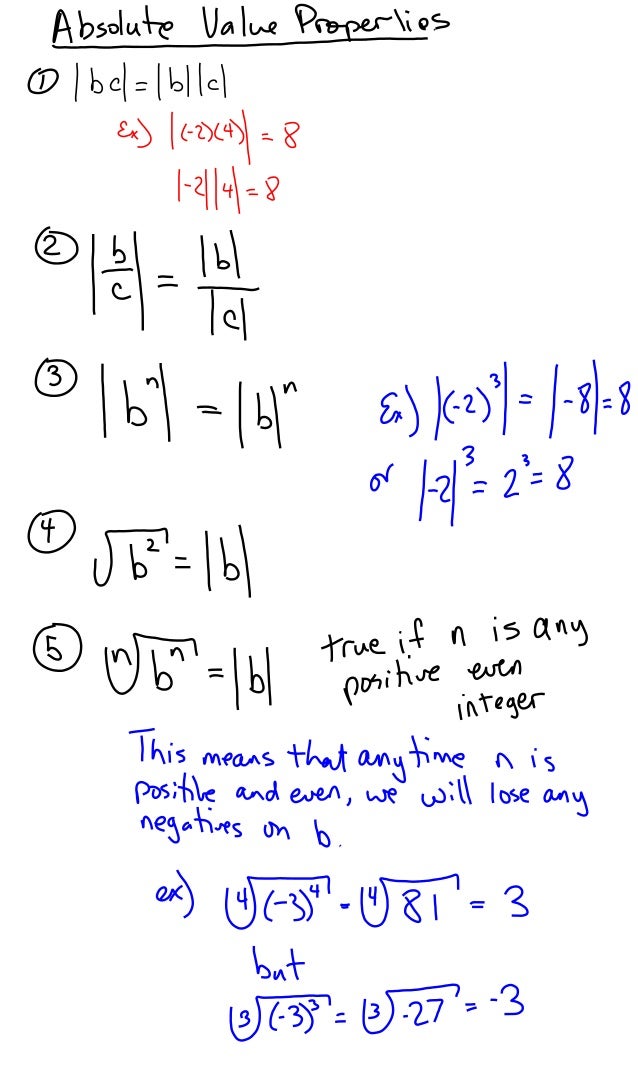 Absolute Value Properties
① |bc| = |b||c|
Ex) |(-2)(4)| = 8
|-2||4| = 8
② |b/c| = |b|/|c|
③ |bⁿ| = |b|ⁿ
Ex) |(-2)³| = |-8| = 8
or |-2|³ = 2³ = 8
④ √b² = |b|
⑤ ⁿ√bⁿ = |b| true if n is any
positive even
integer
This means that anytime n is
positive and even, we will lose any
negatives on b.
ex) ⁴√(-3)⁴ = ⁴√81 = 3
but
³√(-3)³ = ³√-27 = -3